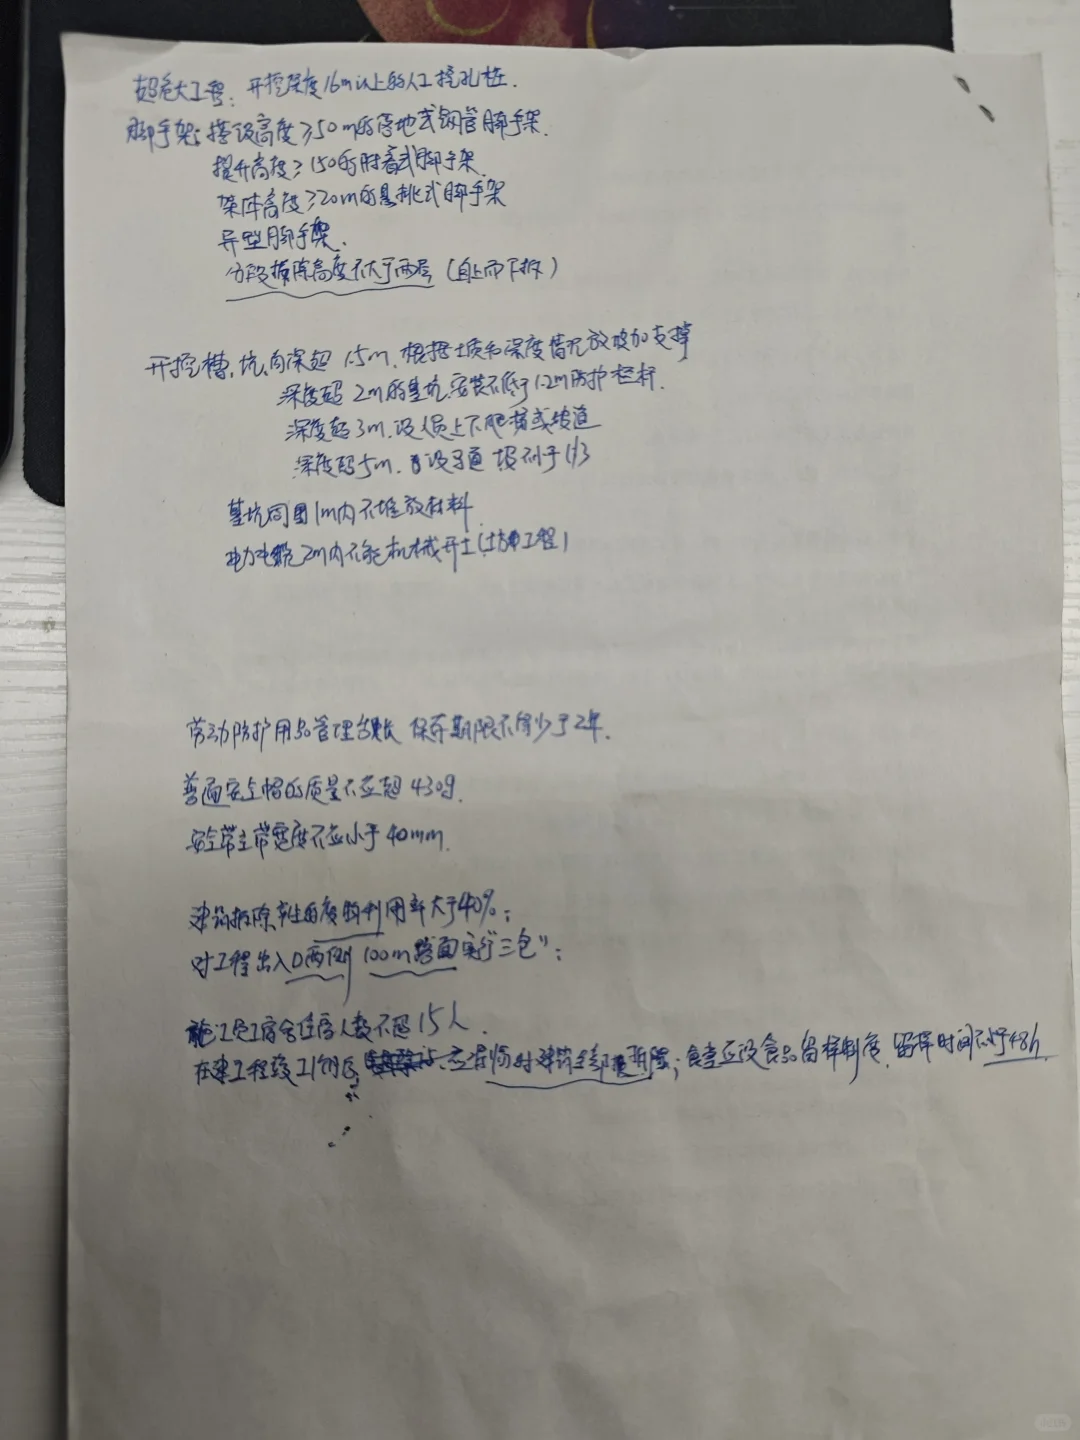 超危大工程：开挖深度16m以上的人工挖孔桩.
脚手架：搭设高度≥50m的落地式钢管脚手架.
提升高度≥150的附着式脚手架.
架体高度≥20m的悬挑式脚手架
异型脚手架.
分段拆除高度不大于两层（自上而下拆）
开挖槽,坑,沟深超 1.5m.根据土质和深度情况放坡加支撑
深度超 2m的基坑.安装不低于1.2m防护栏杆.
深度超3m,设人员上下爬梯或坡道
深度超5m. 设马道 坡不小于1/3
基坑周围1m内不堆放材料
电力电缆2m内不能机械开土（土方工程）
劳动防护用品管理台账 保存期限不得少于2年.
普通安全帽的质量不应超430g.
安全带主带宽度不应小于40mm.
建筑拆除产生的废物利用率大于40%;
对工程出入口两侧100m路面实行“三包”;
施工员工宿舍住宿人数不超15人.
在建工程竣工 ;食堂应设食品留样制度.留样时间不小于48h.